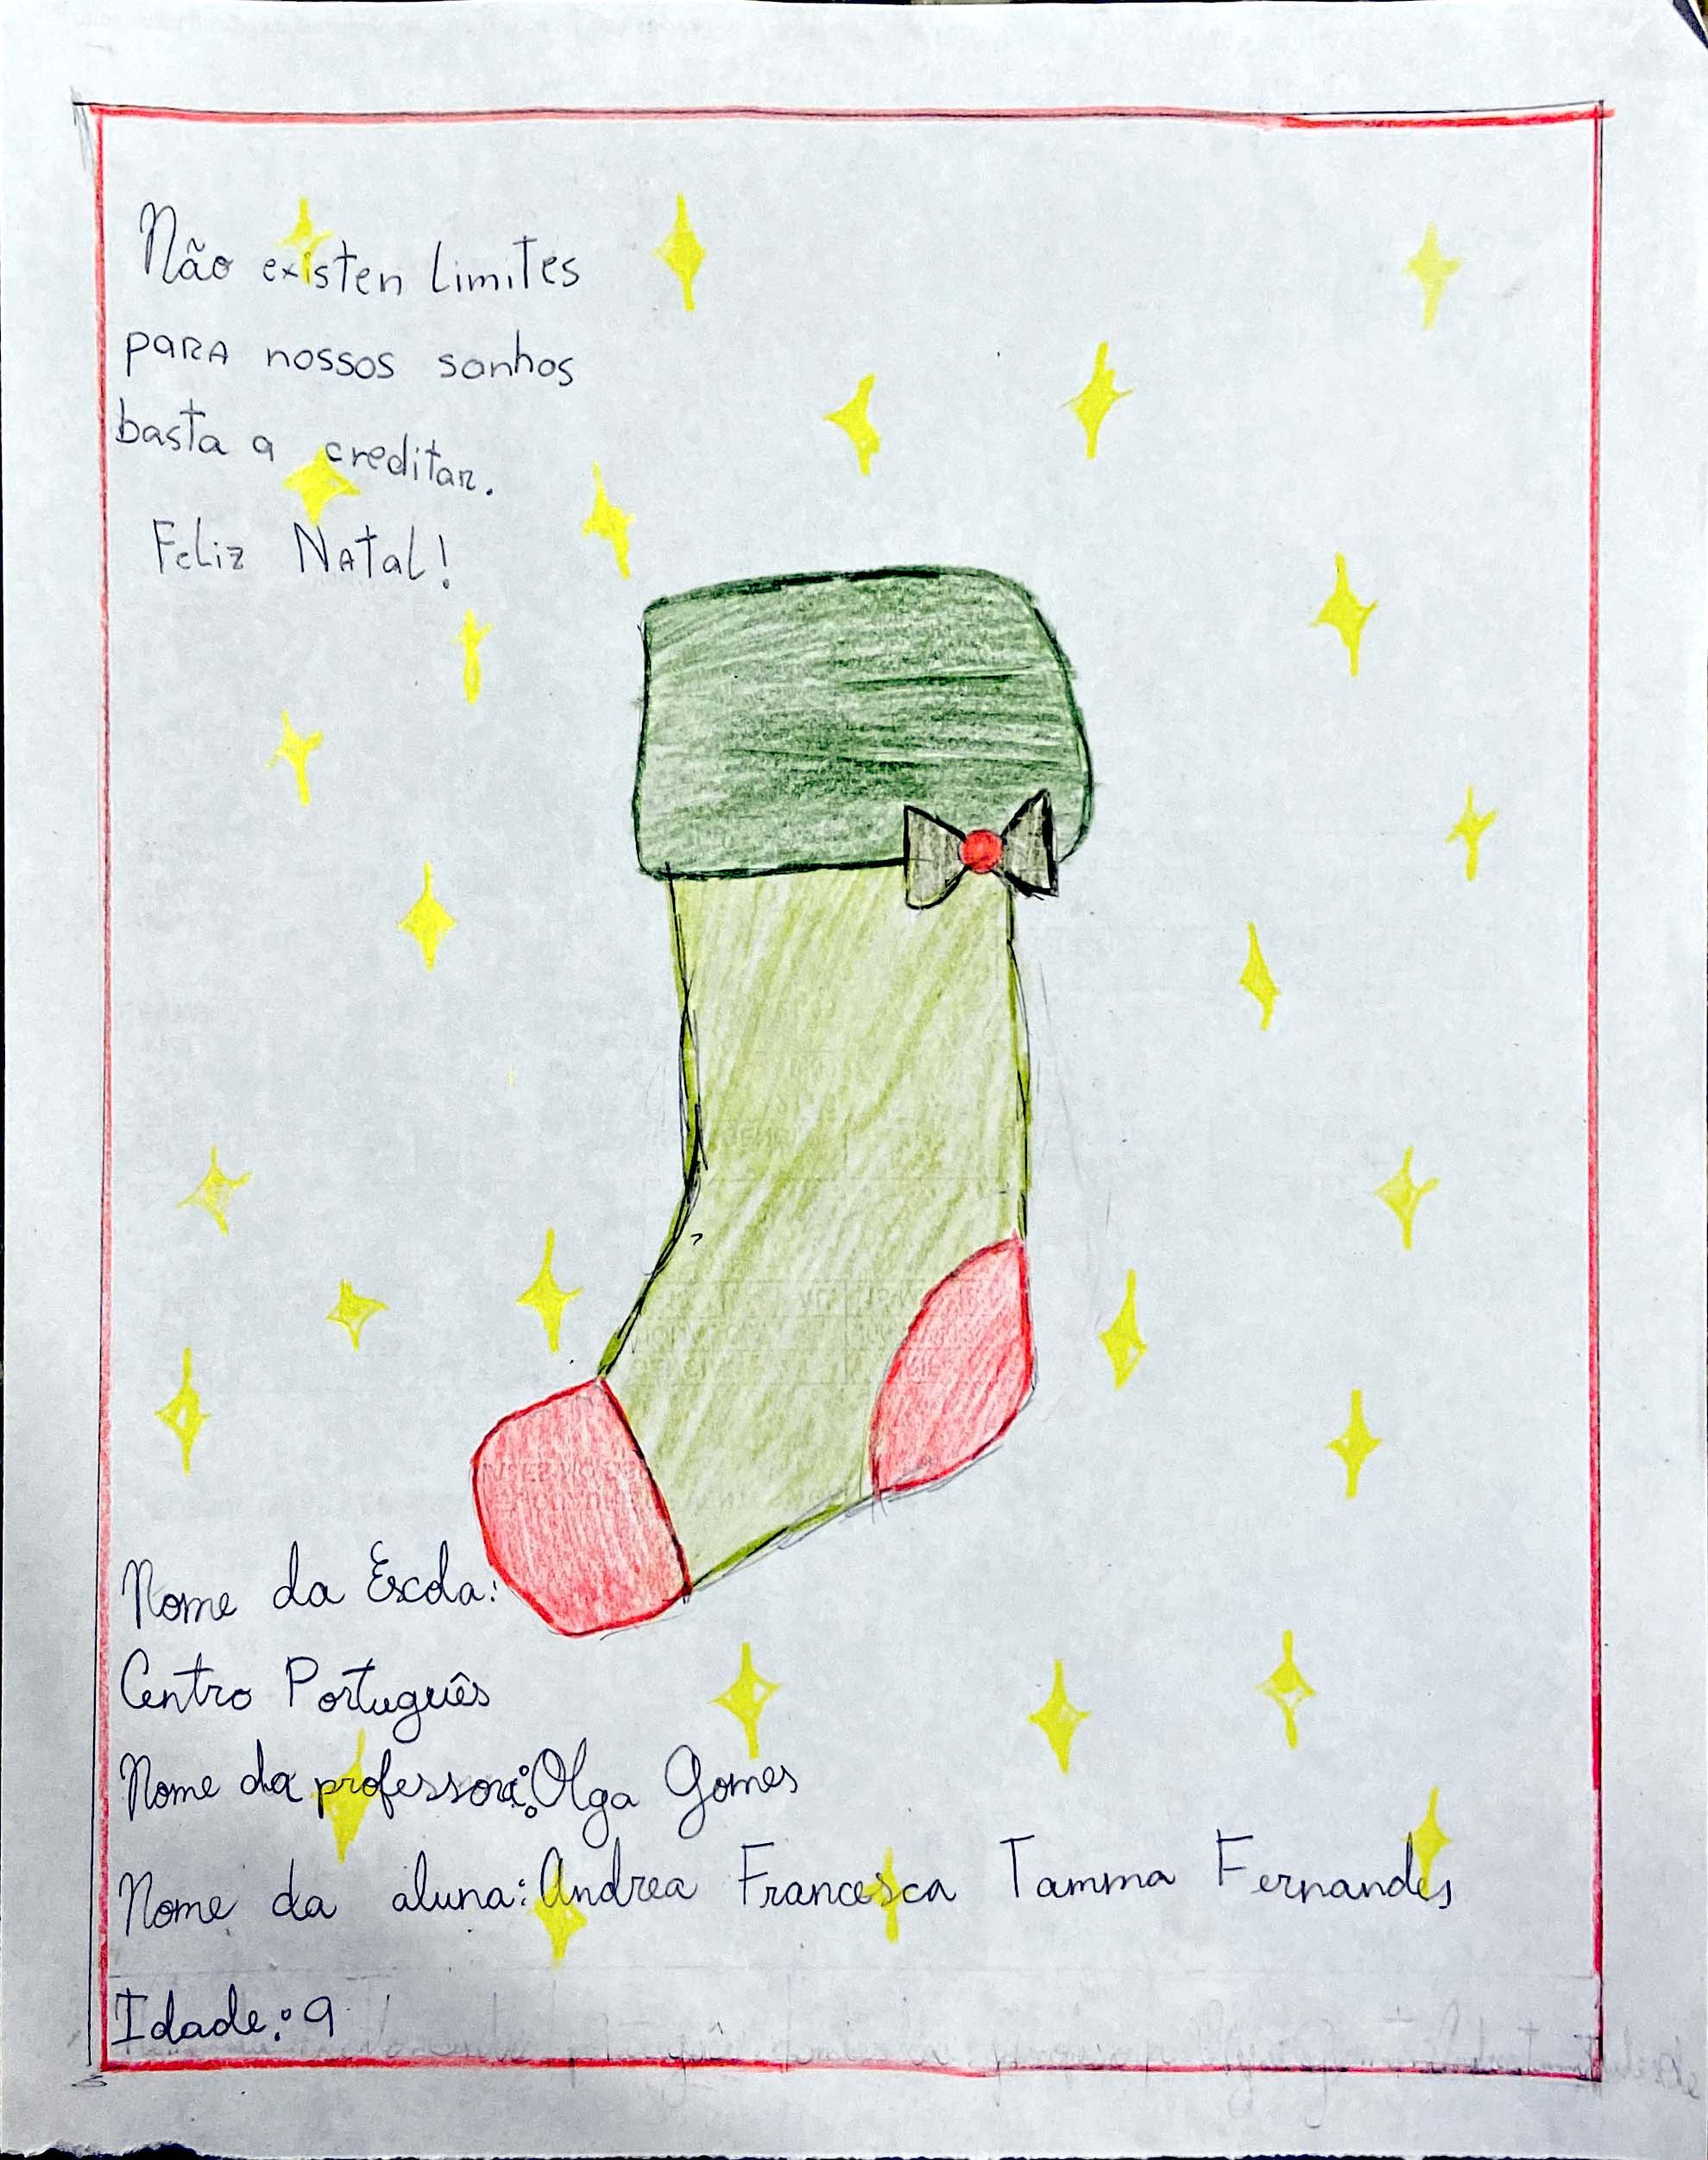 Não existen limites
para nossos sonhos
basta a creditar.
Feliz Natal!
Nome da Escola:
Centro Português
Nome da professora: Olga Gomes
Nome da aluna: Andrea Francesca Tamma Fernandes
Idade: 9